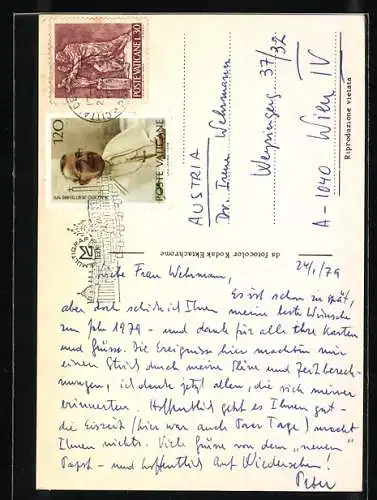 POSTE VATICANE L.30
120
POSTE VATICANE
AUSTRIA
Dr. Irene Wehrmann
Weyringerg. 37/32
A-1040 Wien IV
Riproduzione vietata
da fotocolor Kodak Ektachrome
24/1/79
Liebe Frau Wehrmann,
Es ist schon zu spät,
aber doch schicke ich Ihnen meine beste Wünsche
zum Jahr 1979 - und danke für alle Ihre Karten
und Grüsse. Die Ereignisse hier machten mir
einen Strich durch meine Pläne und Zeitberech-
nungen, ich danke jetzt allen, die sich meiner
erinnerten. Hoffentlich geht es Ihnen gut -
die Eiszeit (hier war auch Paar Tage) macht
Ihnen nichts. Viele Grüsse von dem "neuen"
Papst - und hoffentlich Auf Wiedersehen!
Peter